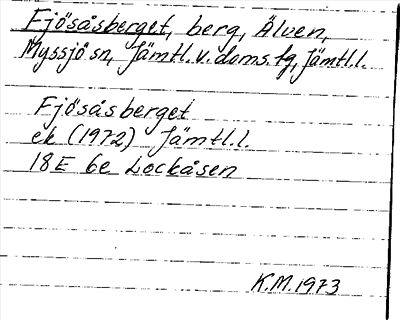 Fjösåsberget, berg, Älven,
Myssjö sn, Jämtl. v. doms. tg, Jämtl.l.
Fjösåsberget
ek (1972) Jämtl.l.
18E 6e Lockåsen
K.M. 1973